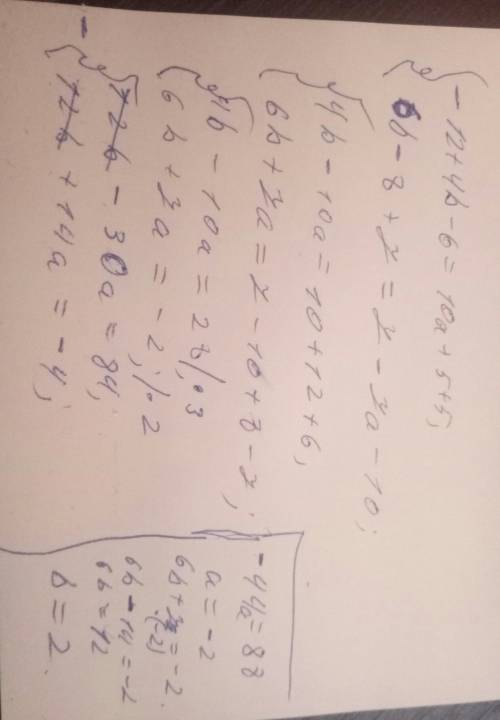 -12+4b-6=10a+5+5;
6b-8+7=7-7a-10;
4b-10a=10+12+6;
6b+7a=7-10+8-7;
4b-10a=28/·3
6b+7a=-2;/·2
- 12b-30a=84;
12b+14a=-4;
-44a=88
a=-2
6b+7·(-2)=-2
6b-14=-2
6b=12
b=2.